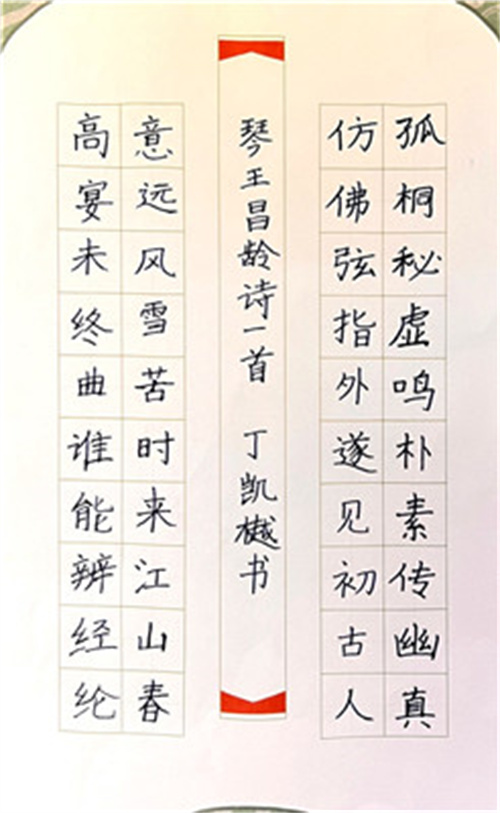 孤桐秘虚鸣朴素传幽真
仿佛弦指外遂见初古人
琴王昌龄诗一首 丁凯樾书
意远风雪苦时来江山春
高宴未终曲谁能辨经纶